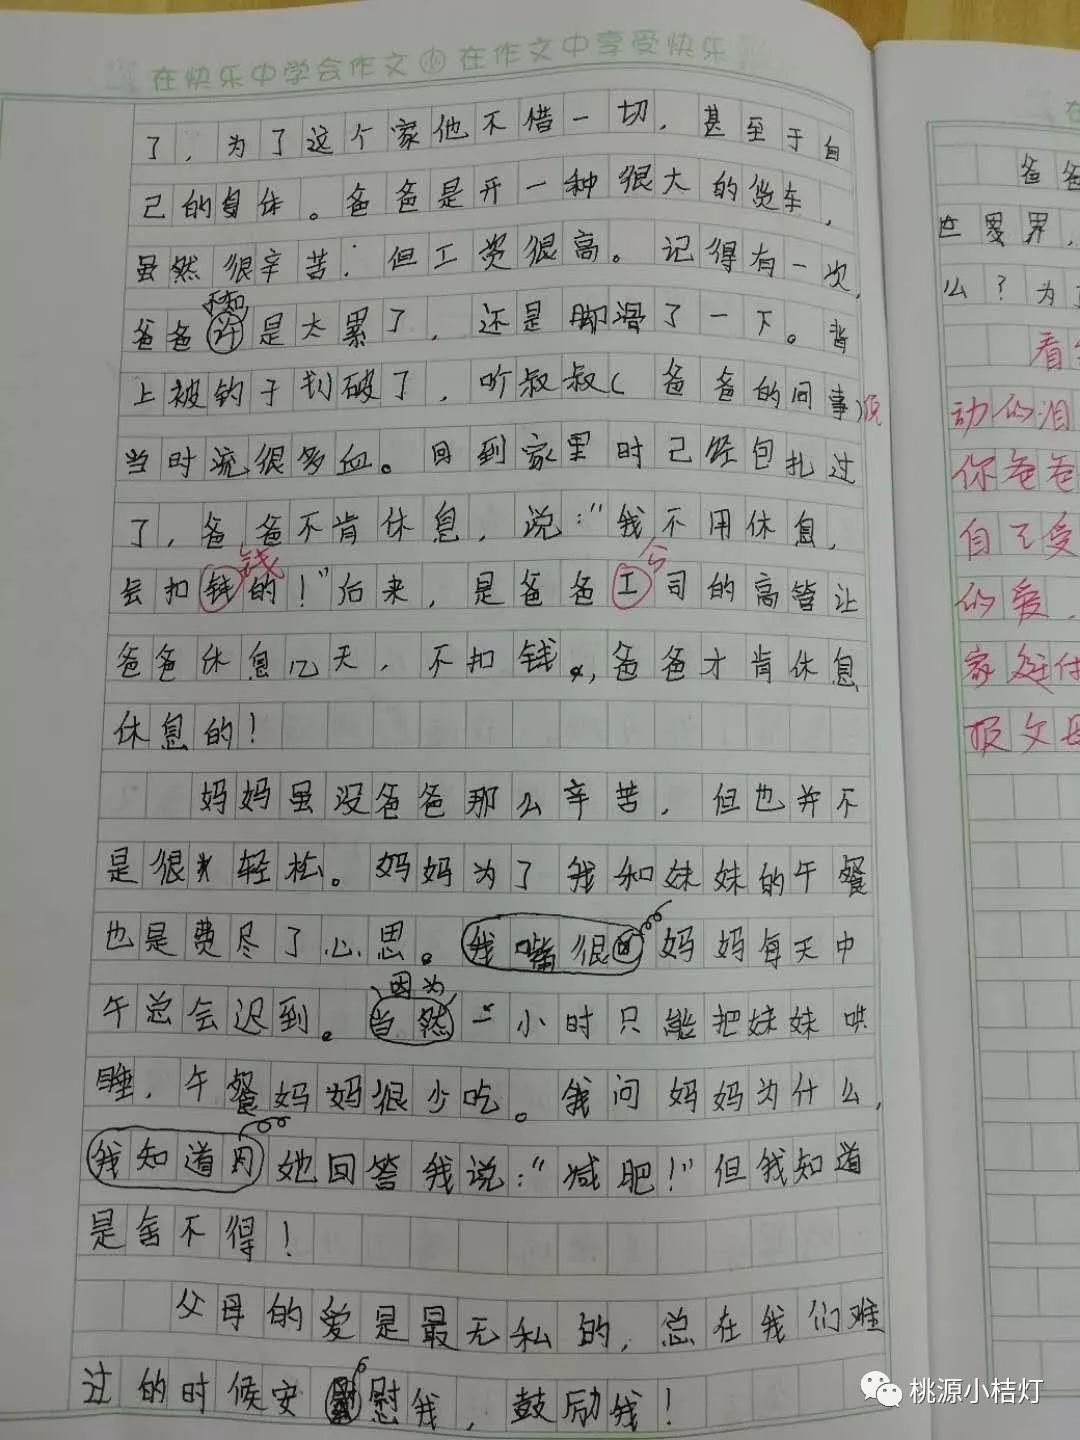 在快乐中学会作文 小 在作文中享受快乐
了，为了这个家他不惜一切，甚至于自
己的身体。爸爸是开一种很大的货车，
虽然很辛苦，但工资很高。记得有一次，
不知
爸爸许是太累了，还是脚滑了一下。背
上被钓于划破了，听叔叔（爸爸的同事）说
当时流很多血。回到家里时己经包扎过
了，爸爸不肯休息，说："我不用休息，
会扣钱的！"后来，是爸爸工司的高管让
钱
公
爸爸休息几天，不扣钱，爸爸才肯休息
休息的！
妈妈虽没爸爸那么辛苦，但也并不
是很轻松。妈妈为了我和妹妹的午餐
也是费尽了心思。我嘴很 妈妈每天中
因为
午总会迟到。当然一小时只能把妹妹哄
睡，午餐妈妈很少吃。我问妈妈为什么，
我知道 她回答我说："减肥！"但我知道
是舍不得！
父母的爱是最无私的，总在我们难
过的时候安慰我，鼓励我！
在
爸爸
世界界，
么？为了
看
动的泪
你爸爸
自己受
的爱，
家庭付
报父母
桃源小桔灯